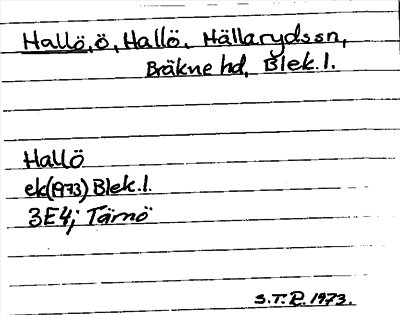 Hallö, ö, Hallö, Hällarydssn,
Bräkne hd, Blek.l.
Hallö
ek(1973) Blek.l.
3E4; Tärnö
S.T.R. 1973.